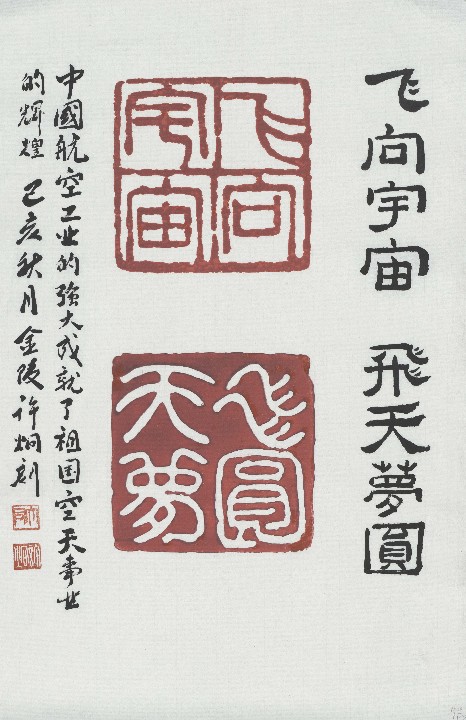 飞向宇宙 飛天夢圓
飞向
宇宙
飞圓
天夢
中國航空工业的強大成就了祖国空天事业
的輝煌 己亥秋月金陵许炯刻